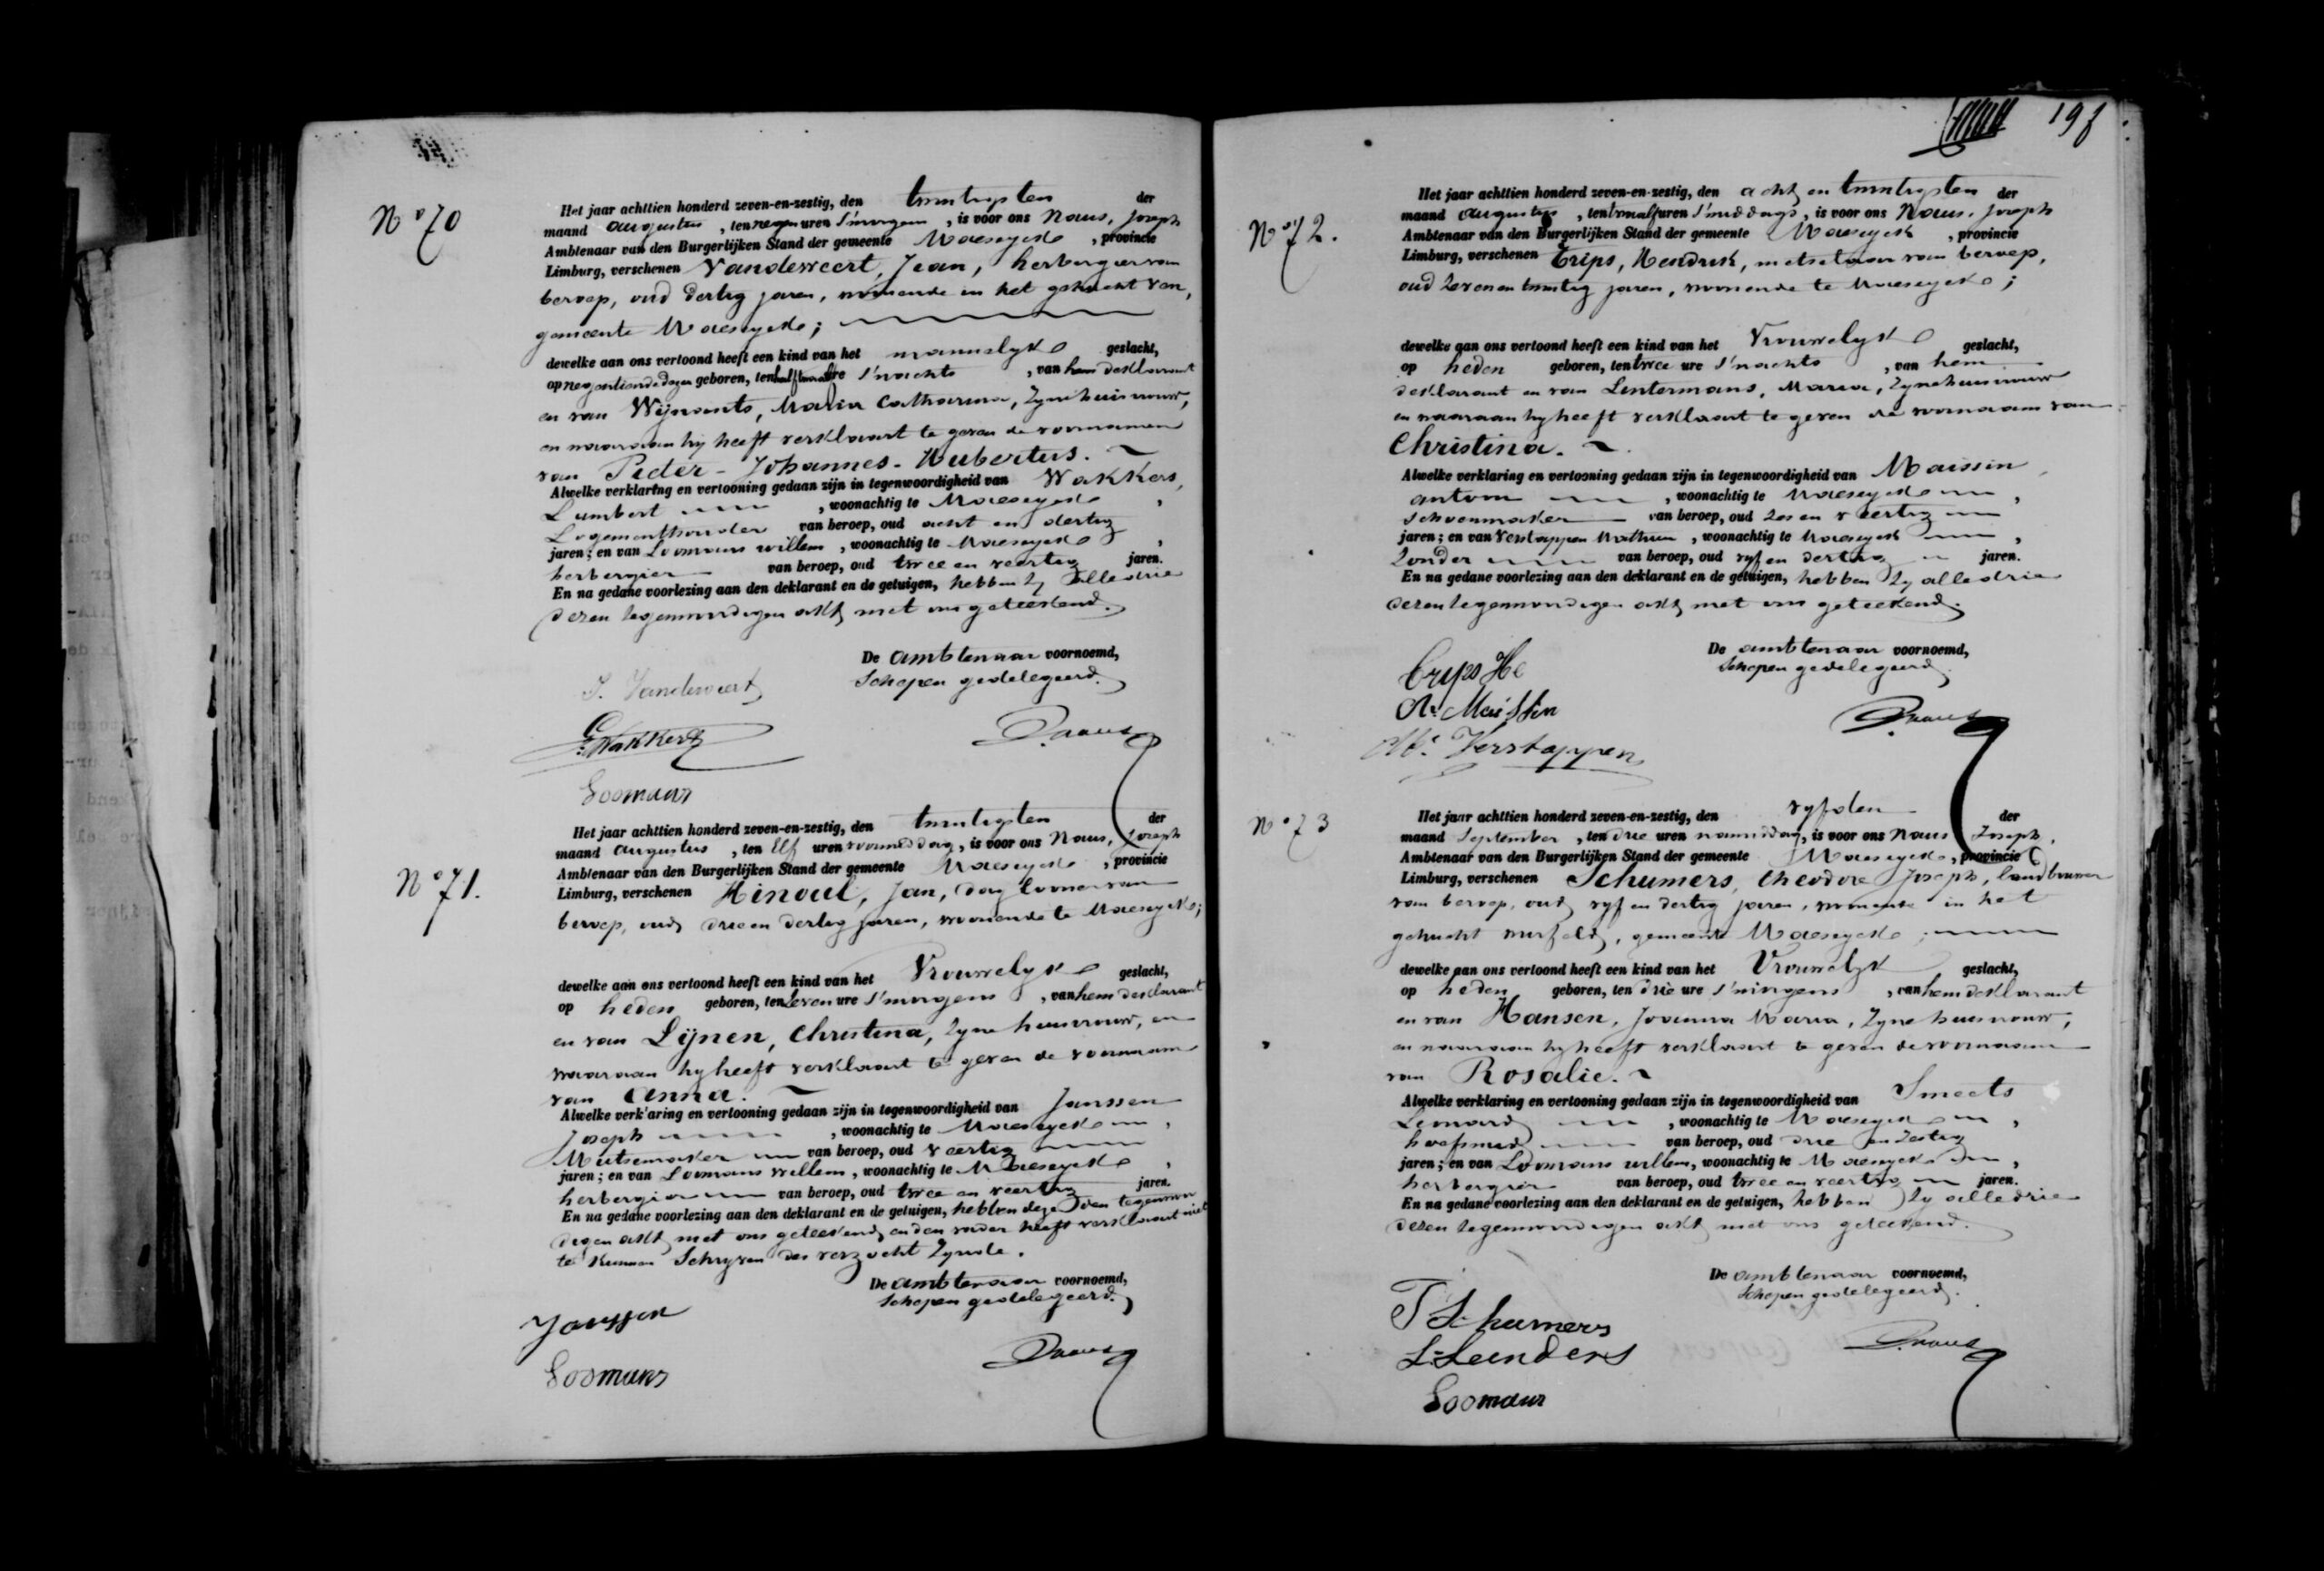 N° 70
Het jaar achttien honderd zeven-en-zestig, den twintigsten der
maand augustus, ten negen uren s'morgens, is voor ons Naus, Joseph
Ambtenaar van den Burgerlijken Stand der gemeente Maeseyck, provincie
Limburg, verschenen Vandeweert, Jean, herbergier van
beroep, oud dertig jaren, woonende in het gehucht
gemeente Maeseyck;
dewelke aan ons vertoond heeft een kind van het mannelyk geslacht,
op negentiende dezer geboren, ten ure s'nachts, van hem deklarant
en van Wijnants, Maria Catharina, Zyne huisvrouw,
en waaraan hij heeft verklaart te geven de voornamen
van Peder-Johannes-Hubertus.
Alwelke verklaring en vertooning gedaan zijn in tegenwoordigheid van Wakkers,
Lambert, woonachtig te Maeseyck,
Logementhouder van beroep, oud acht en dertig
jaren; en van Loomans willem, woonachtig te Maeseyck,
herbergier van beroep, oud twee en veertig jaren.
En na gedane voorlezing aan den deklarant en de getuigen, hebben zy alle drie
dezen tegenwoordigen akt met ons geteekend.
De ambtenaar voornoemd,
Schepen gedelegeerd.
J. Vandeweert
Wakkers
Loomans
N° 71.
Het jaar achttien honderd zeven-en-zestig, den twintigsten der
maand augustus, ten Elf uren voormiddag, is voor ons Naus, Joseph
Ambtenaar van den Burgerlijken Stand der gemeente Maeseyck, provincie
Limburg, verschenen Hinoul, Jan, daglooner van
beroep, oud drie en dertig jaren, woonende te Maeseyck;
dewelke aan ons vertoond heeft een kind van het Vrouwelyk geslacht,
op heden geboren, ten zeven ure s'morgens, van hem deklarant
en van Lijnen, Christina, Zyne huisvrouw, en
waaraan hy heeft verklaart te geven de voornaam
van Anna.
Alwelke verklaring en vertooning gedaan zijn in tegenwoordigheid van Janssen
Joseph, woonachtig te Maeseyck,
Mutsemaker van beroep, oud veertig
jaren; en van Loomans willem, woonachtig te Maeseyck,
herbergier van beroep, oud twee en veertig jaren.
En na gedane voorlezing aan den deklarant en de getuigen, hebben deze den tegenwoor
digen akt met ons geteekend, en den vader heeft verklaart niet
te kunnen Schryven des verzocht Zynde.
De ambtenaar voornoemd,
Schepen gedelegeerd.
Janssen
Loomans
N° 72.
Het jaar achttien honderd zeven-en-zestig, den acht en twintigsten der
maand augustus, ten twaalf uren s'middags, is voor ons Naus, Joseph
Ambtenaar van den Burgerlijken Stand der gemeente Maeseyck, provincie
Limburg, verschenen Trips, Hendrik, metselaar van beroep,
oud zeven en twintig jaren, woonende te Maeseyck;
dewelke aan ons vertoond heeft een kind van het Vrouwelyk geslacht,
op heden geboren, ten twee ure s'nachts, van hem
deklarant en van Lintermans, Maria, Zyne huisvrouw
en waaraan hy heeft verklaart te geven de voornaam van
Christina.
Alwelke verklaring en vertooning gedaan zijn in tegenwoordigheid van Maissin
antoon, woonachtig te Maeseyck,
Schoenmaker van beroep, oud Zes en veertig
jaren; en van Verstappen Mathieu, woonachtig te Maeseyck,
Zonder van beroep, oud vyf en dertig jaren.
En na gedane voorlezing aan den deklarant en de getuigen, hebben zy alle drie
dezen tegenwoordigen akt met ons geteekend.
De ambtenaar voornoemd,
Schepen gedelegeerd.
Trips He
A. Maissin
M. Verstappen
N° 73
Het jaar achttien honderd zeven-en-zestig, den vyfden der
maand September, ten drie uren namiddag, is voor ons Naus Joseph,
Ambtenaar van den Burgerlijken Stand der gemeente Maeseyck, provincie
Limburg, verschenen Schumers, theodore Joseph, landbouwer
van beroep, oud vyf en dertig jaren, woonende in het
gehucht, gemeente Maeseyck;
dewelke aan ons vertoond heeft een kind van het Vrouwelyk geslacht,
op heden geboren, ten drie ure s'morgens, van hem deklarant
en van Hansen, Joanna Maria, Zyne huisvrouw,
en waaraan hy heeft verklaart te geven de voornaam
van Rosalie.
Alwelke verklaring en vertooning gedaan zijn in tegenwoordigheid van Smeets
Leonard, woonachtig te Maeseyck,
hoefsmid van beroep, oud drie en zestig
jaren; en van Loomans willem, woonachtig te Maeseyck,
herbergier van beroep, oud twee en veertig jaren.
En na gedane voorlezing aan den deklarant en de getuigen, hebben zy alle drie
dezen tegenwoordigen akt met ons geteekend.
De ambtenaar voornoemd,
Schepen gedelegeerd.
T Schumers
Loomans